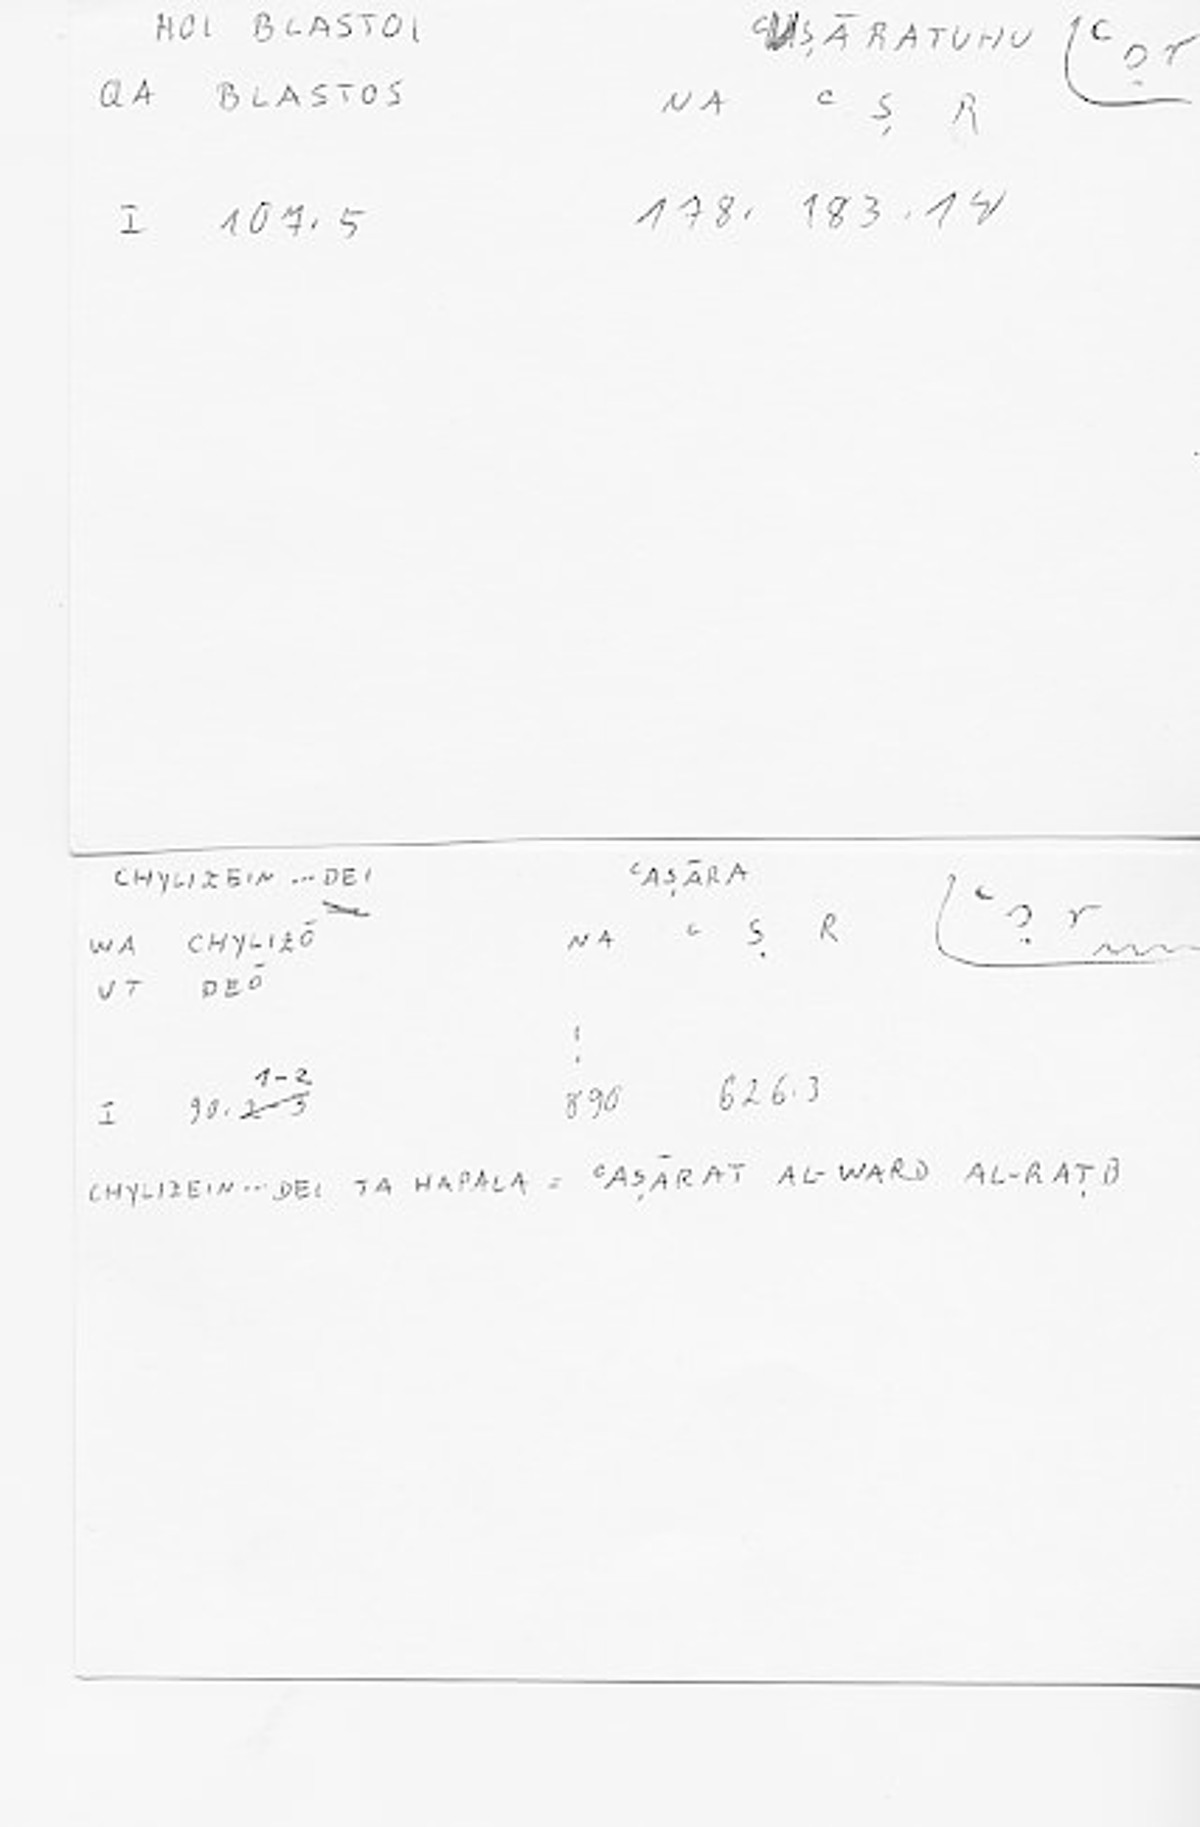 HOI BLASTOI ʿUṢĀRATUHU ʿṣr
QA BLASTOS NA ʿ Ṣ R
I 107.5 178. 183.14
CHYLIZEIN ... DEI ʿAṢĀRA
WA CHYLIZŌ NA ʿ Ṣ R ʿṣr
VT DEŌ
!
1-2
I 90. 2-3 890 626.3
CHYLIZEIN ... DEI TA HAPALA = ʿAṢĀRAT AL-WARD AL-RAṬB